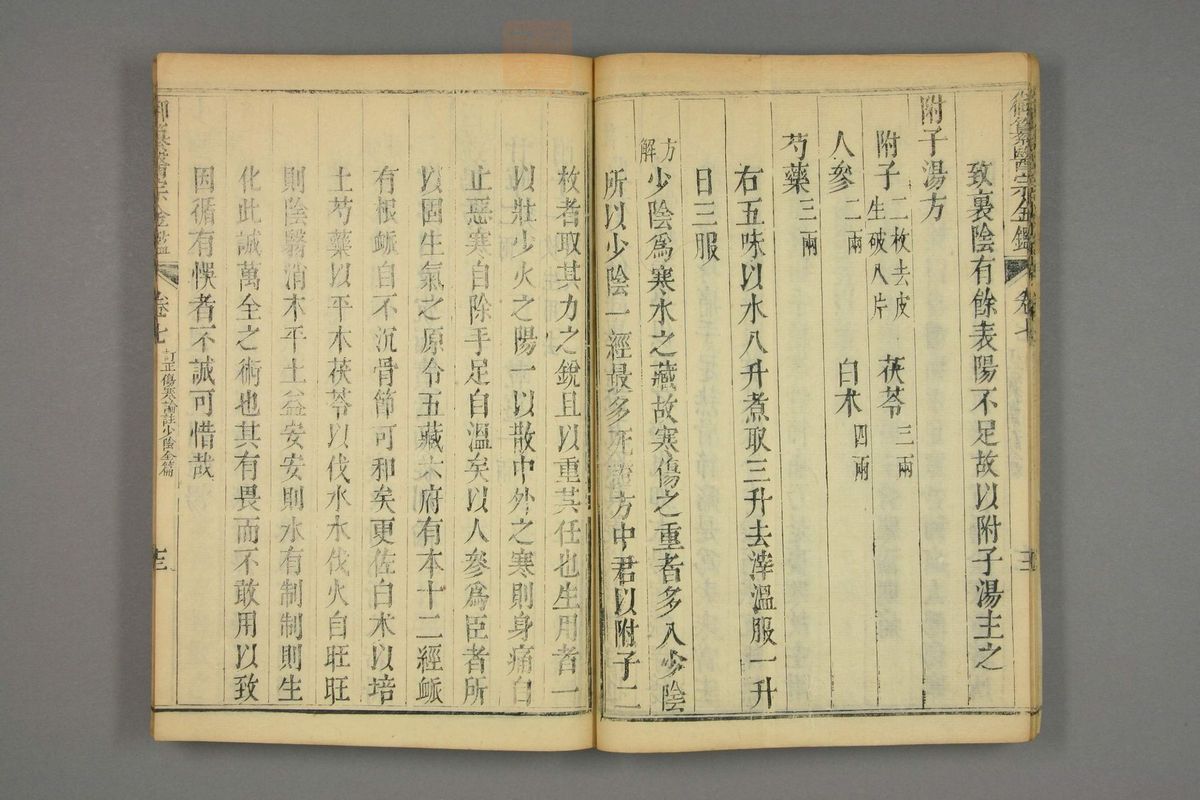 御纂醫宗金鑑
卷七
三
致裏陰有餘表陽不足故以附子湯主之
附子湯方
附子二枚去皮生破八片 茯苓三兩
人參二兩 白朮四兩
芍藥三兩
右五味以水八升煮取三升去滓溫服一升
日三服
方解
少陰爲寒水之藏故寒傷之重者多入少陰
所以少陰一經最多死證方中君以附子二
枚者取其力之銳且以重其任也生用者一
以壯少火之陽一以散中外之寒則身痛自
止惡寒自除手足自溫矣以人參爲臣者所
以固生氣之原令五藏六府有本十二經脈
有根脈自不沉骨節可和矣更佐白朮以培
土芍藥以平木茯苓以伐水水伐火自旺旺
則陰翳消木平土益安安則水有制制則生
化此誠萬全之術也其有畏而不敢用以致
因循有悞者不誠可惜哉
御纂醫宗金鑑
卷七
訂正傷寒論註少陰全篇
三